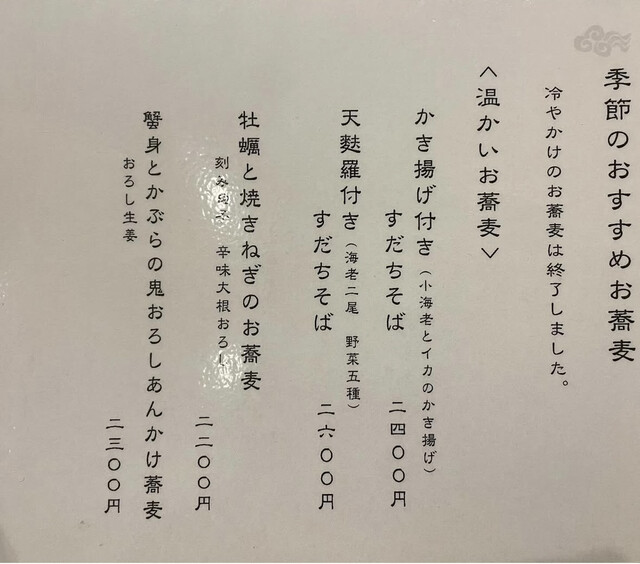 季節のおすすめお蕎麦
冷やかけのお蕎麦は終了しました。
＜温かいお蕎麦＞
かき揚げ付き（小海老とイカのかき揚げ）
すだちそば 二四〇〇円
天麩羅付き（海老二尾 野菜五種）
すだちそば 二六〇〇円
牡蠣と焼きねぎのお蕎麦
刻み 辛味大根おろし 二二〇〇円
蟹身とかぶらの鬼おろしあんかけ蕎麦
おろし生姜 二三〇〇円